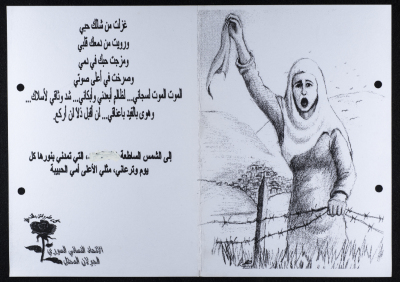 غزلت من شالك حبي
ورويت من دمعك قلبي
ومزجت حبك في دمي
وصرخت في أعلى صوتي
الموت الموت لسجاني... لظالم أبعدني وأبكاني... شد وثاقي لأسلاك...
وهوى بالقيد بأعناقي... لن أقبل ذلا لن أركع.
إلى الشمس الساطعة التي تمدني بنورها كل
يوم وترعاني، مثلي الأعلى أمي الحبيبة
الإتحاد النسائي السوري
الجولان المحتل